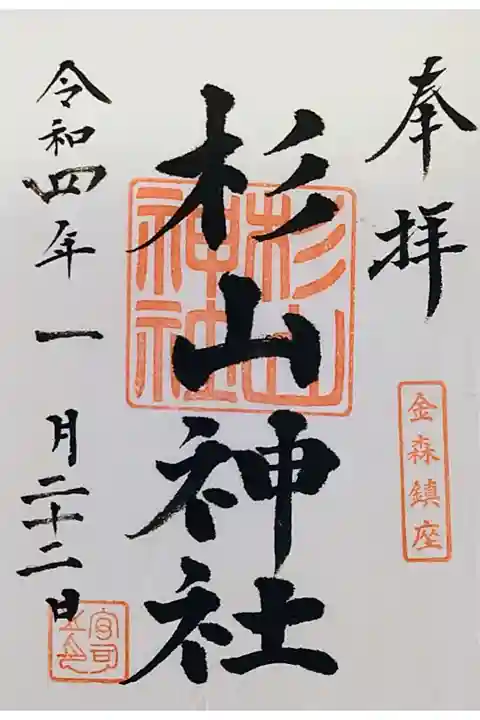 奉拝
金森鎮座
杉山神社
杉山神社
令和四年一月二十二日
宮司之印